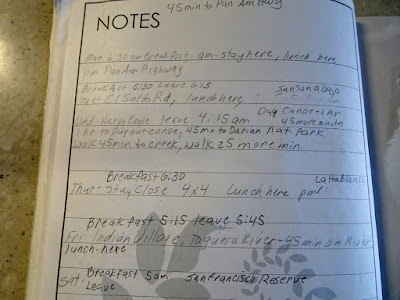 45min to Pan Am Hwy
NOTES
Mon 6:30 am Breakfast am-stay here, lunch here
pm. Pan Am Highway
Breakfast 5:30 Leave 6:15 Sansonabajo
Tues- El Salto Rd, lunch here
Dug Canoe-1hr
Wed-Harpy Eagle leave 4:15am 45 more min to
1 hr to dugout canoe, 45mn to Darian Nat Park
Walk 45min to creek, walk 25 more min
Breakfast 6:30 Lattablanca
Thur-Stay Close 4x4 Lunch here pm
Breakfast 5:15 leave 5:45
Fri Indian Village, Toquesa River-45min on River
lunch-here
Breakfast 5am San Francisco Reserve
Sat.
Leave